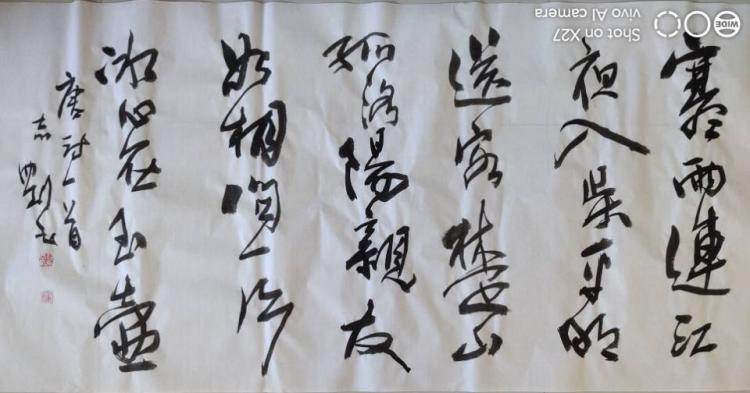 寒雨連江
夜入吴平明
送客楚山
孤洛陽親友
如相問一片
冰心在玉壺
唐詩一首
Shot on X27
vivo AI camera
WIDE